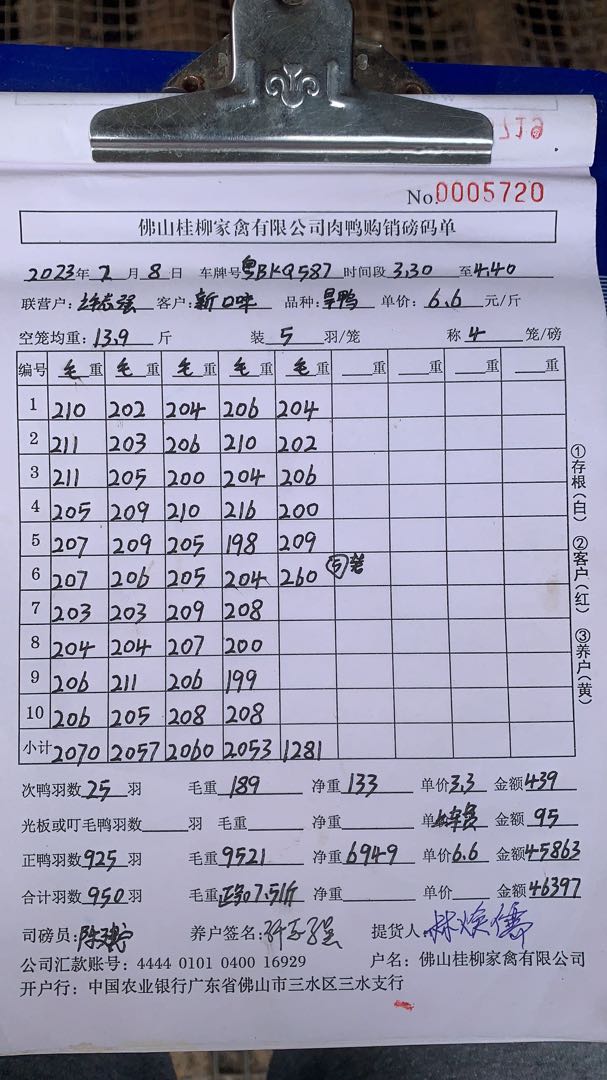 719
No. 0005720
佛山桂柳家禽有限公司肉鸭购销磅码单
2023年 2月 8日 车牌号粤BKQ587 时间段3.30至4.40
联营户: 强 客户: 新口味 品种: 旱鸭 单价: 6.6 元/斤
空笼均重: 13.9 斤 装 5 羽/笼 称 4 笼/磅
编号 毛重 毛重 毛重 毛重 毛重 重 重 重 重
1 210 202 204 206 204
2 211 203 206 210 202
3 211 205 200 204 206
4 205 209 210 216 200
5 207 209 205 198 209
6 207 206 205 204 260 ⑤笼
7 203 203 209 208
8 204 204 207 200
9 206 211 206 199
10 206 205 208 208
小计 2070 2057 2060 2053 1281
次鸭羽数 25 羽 毛重 189 净重 133 单价3.3 金额439
光板或叮毛鸭羽数 羽 毛重 净重 单 金额 95
正鸭羽数 925 羽 毛重 9521 净重 6949 单价6.6 金额45863
合计羽数 950 羽 毛重正均7.51斤 净重 单价 金额46397
司磅员: 陈 养户签名: 提货人: 林焕儒
公司汇款账号: 4444 0101 0400 16929 户名: 佛山桂柳家禽有限公司
开户行: 中国农业银行广东省佛山市三水区三水支行
①存根(白) ②客户(红) ③养户(黄)